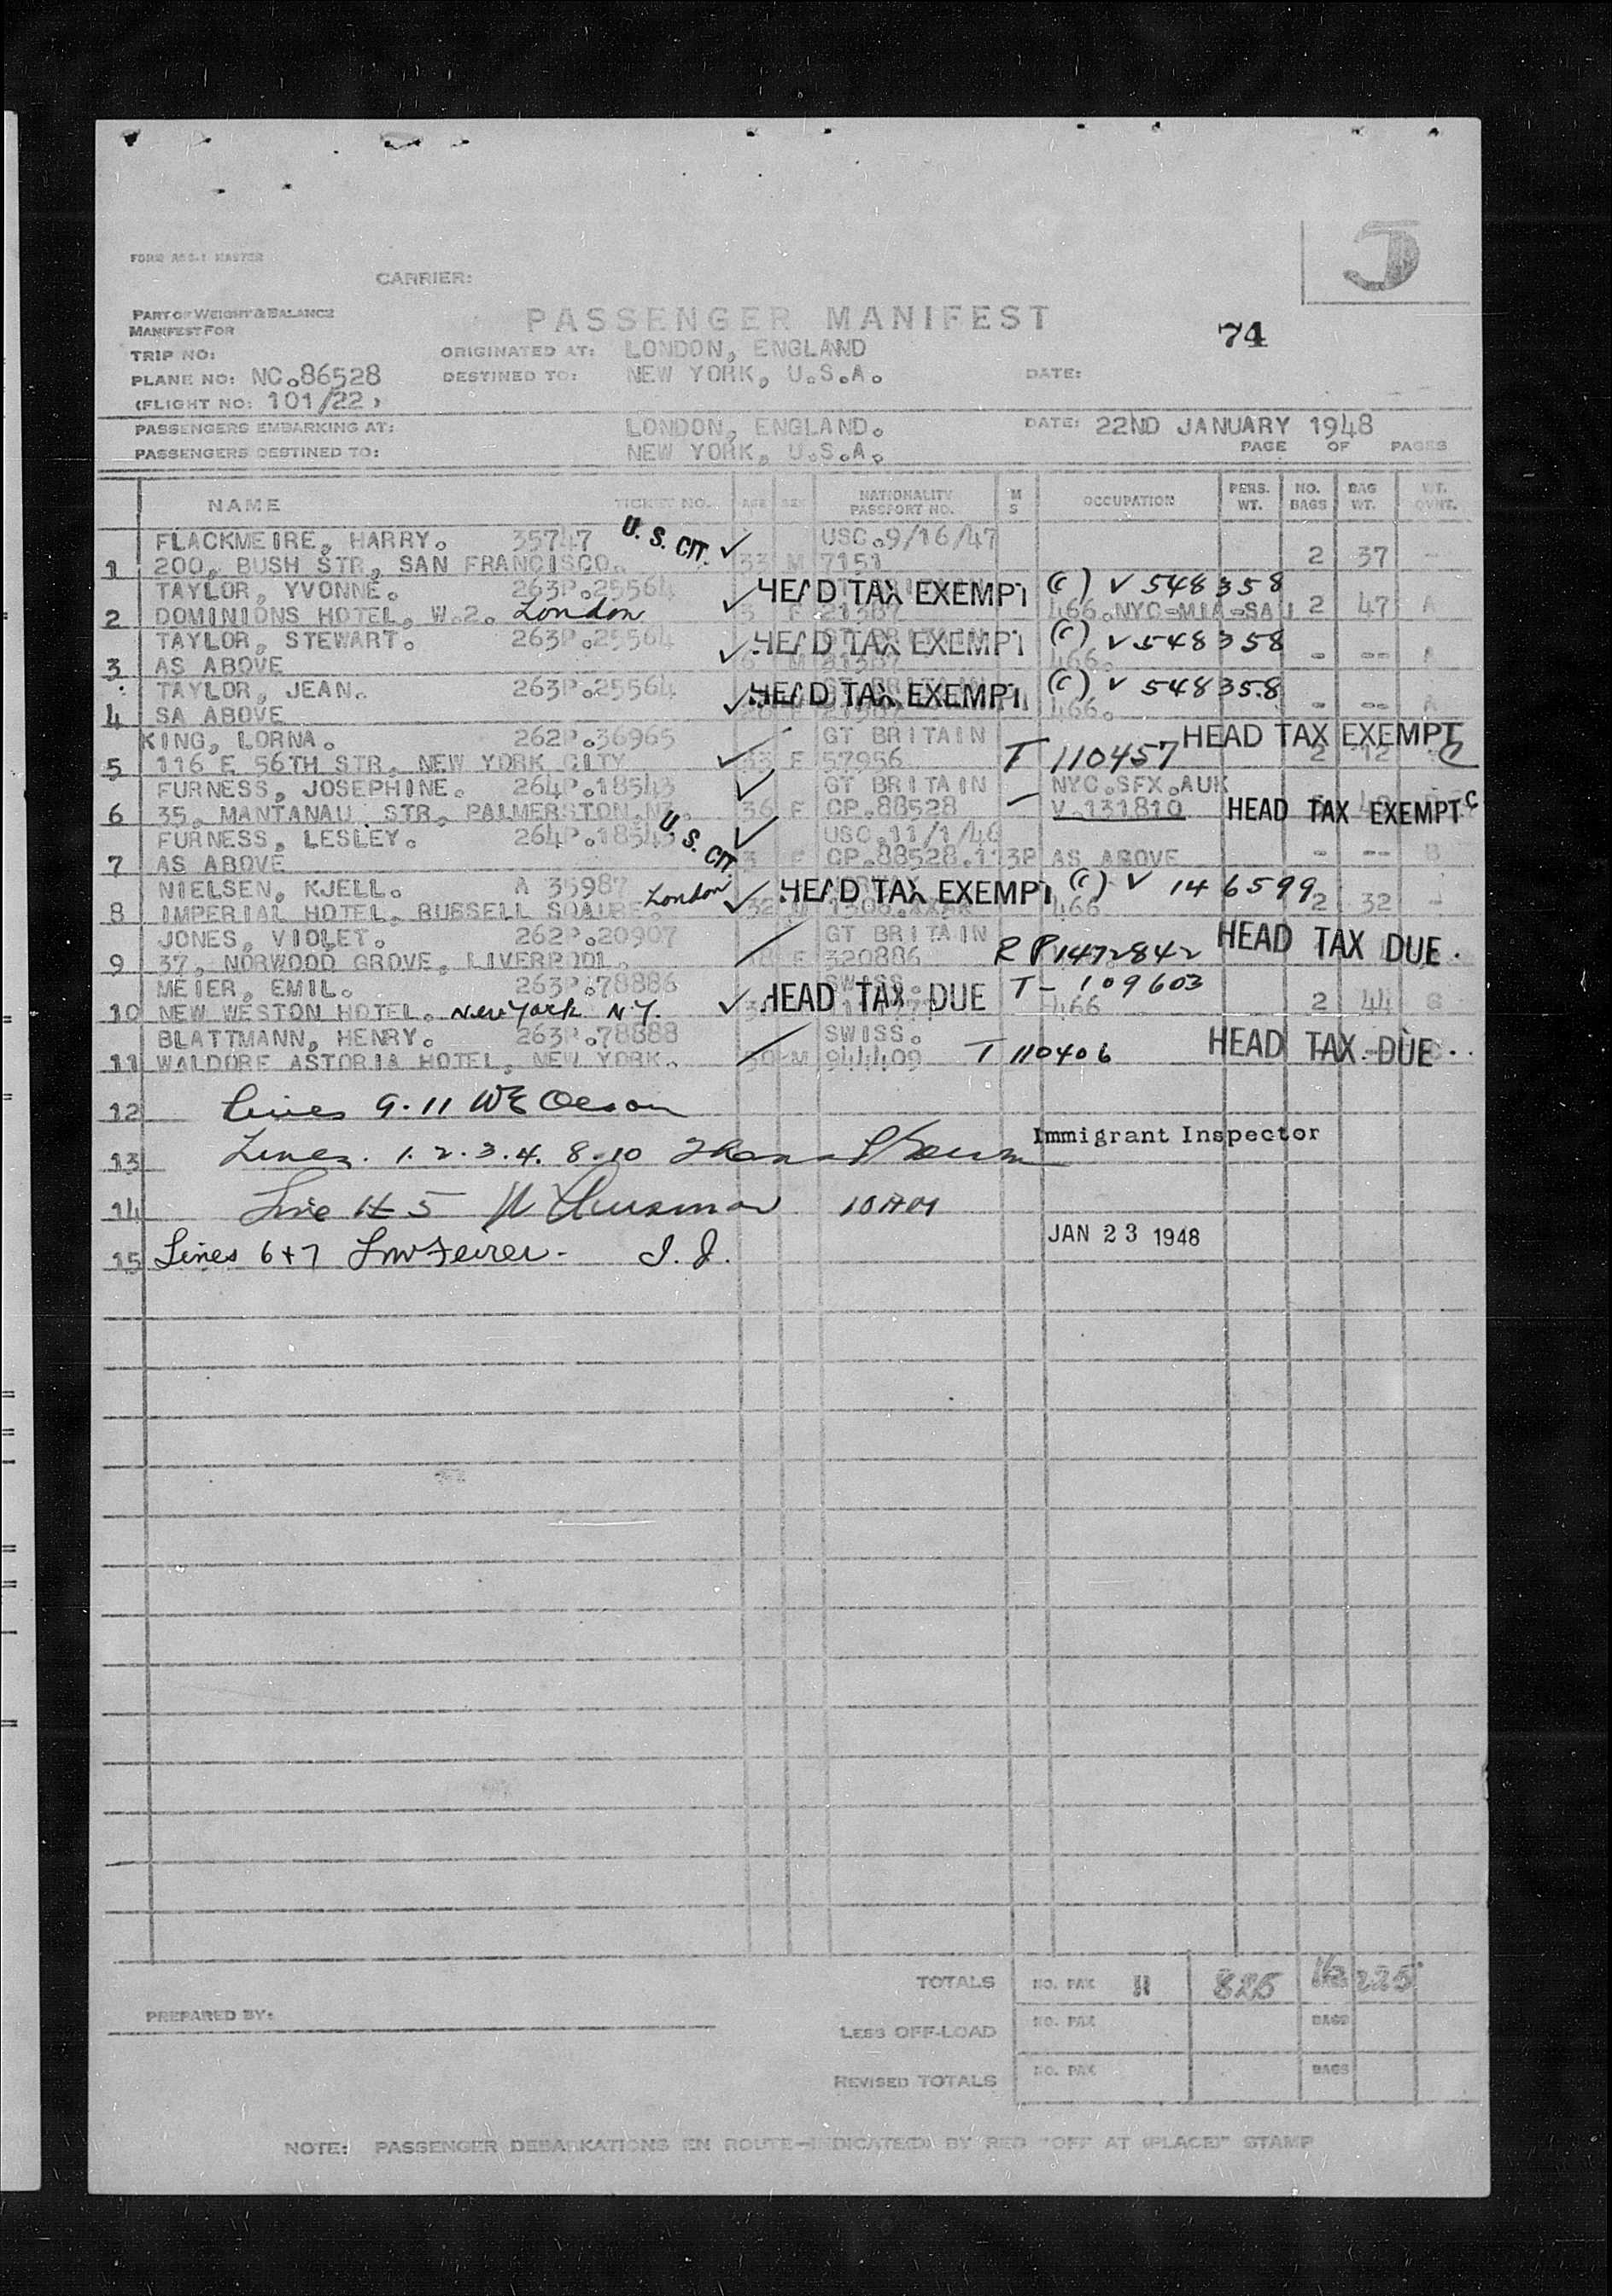 5
FORM ACS-1 MASTER
CARRIER:
PART OF WEIGHT & BALANCE
MANIFEST FOR
PASSENGER MANIFEST
74
TRIP NO:
ORIGINATED AT: LONDON, ENGLAND
PLANE NO: NC.86528
DESTINED TO: NEW YORK, U.S.A. DATE:
(FLIGHT NO: 101/22 )
PASSENGERS EMBARKING AT: LONDON, ENGLAND. DATE: 22ND JANUARY 1948
PASSENGERS DESTINED TO: NEW YORK, U.S.A. PAGE OF PAGES
NAME TICKET NO. AGE SEX NATIONALITY PASSPORT NO. M S OCCUPATION PERS. WT. NO. BAGS BAG WT. WT. QVNT.
FLACKMEIRE, HARRY. 35747 U. S. CIT. ✓ USC.9/16/47
1 200, BUSH STR, SAN FRANCISCO. 33 M 7151 2 37 -
TAYLOR, YVONNE. 263P.25564 ✓ HEAD TAX EXEMPT (C) V 548358
2 DOMINIONS HOTEL, W.2. London F 21587 466.NYC-MIA-SAU 2 47 A
TAYLOR, STEWART. 263P.25564 ✓ HEAD TAX EXEMPT (C) V 548358
3 AS ABOVE 6 M 466. - -- A
TAYLOR, JEAN. 263P.25564 ✓ HEAD TAX EXEMPT (C) V 548358
4 SA ABOVE F 466. - -- A
KING, LORNA. 262P.36965 GT BRITAIN HEAD TAX EXEMPT
5 116 E 56TH STR, NEW YORK CITY ✓ F 57956 T 110457 2 12 C
FURNESS, JOSEPHINE. 264P.18543 ✓ GT BRITAIN NYC.SFX.AUK
6 35, MANTANAU STR, PALMERSTON.NZ. 36 F CP.88528 - V.131810 HEAD TAX EXEMPT C
FURNESS, LESLEY. 264P.18543 U. S. CIT. ✓ USC.11/1/46
7 AS ABOVE 3 F CP.88528.113P AS ABOVE - -- B
NIELSEN, KJELL. A 35987 London ✓ HEAD TAX EXEMPT (C) V 146599
8 IMPERIAL HOTEL, RUSSELL SQAURE. 32 M 466 2 32 -
JONES, VIOLET. 262P.20907 GT BRITAIN
9 37, NORWOOD GROVE, LIVERPOOL. F 320886 RP1472842 HEAD TAX DUE.
MEIER, EMIL. 263P.78886 SWISS. T- 109603
10 NEW WESTON HOTEL. New York N.Y. ✓ HEAD TAX DUE 466 2 44
BLATTMANN, HENRY. 263P.78888 SWISS.
11 WALDORF ASTORIA HOTEL, NEW YORK. M 944409 T 110406 HEAD TAX DUE
12 Lines 9-11 WE Oleson
Immigrant Inspector
13 Lines. 1. 2. 3. 4. 8-10
14 Line # 5
JAN 23 1948
15 Lines 6+7 I. I.
TOTALS NO. PAX 11 825 225
PREPARED BY:
LESS OFF-LOAD NO. PAX BAGS
REVISED TOTALS NO. PAX BAGS
NOTE: PASSENGER DEBARKATIONS EN ROUTE-INDICATE(D) BY RED "OFF AT (PLACE)" STAMP